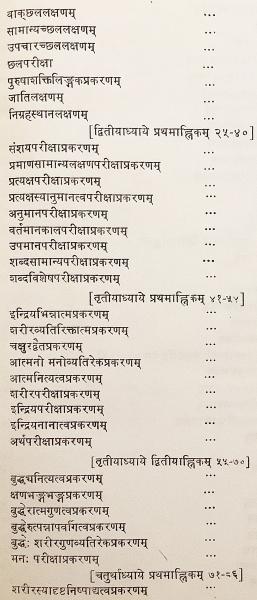 वाक्छललक्षणम् ...
सामान्यच्छललक्षणम् ...
उपचारच्छललक्षणम् ...
छलपरीक्षा ...
पुरुषाशक्तिलिङ्गकप्रकरणम् ...
जातिलक्षणम् ...
निग्रहस्थानलक्षणम् ...
[द्वितीयाध्याये प्रथमाह्निकम् २५-४०]
संशयपरीक्षाप्रकरणम् ...
प्रमाणसामान्यलक्षणपरीक्षाप्रकरणम् ...
प्रत्यक्षपरीक्षाप्रकरणम् ...
प्रत्यक्षस्यानुमानत्वपरीक्षाप्रकरणम् ...
अनुमानपरीक्षाप्रकरणम् ...
वर्तमानकालपरीक्षाप्रकरणम् ...
उपमानपरीक्षाप्रकरणम् ...
शब्दसामान्यपरीक्षाप्रकरणम् ...
शब्दविशेषपरीक्षाप्रकरणम् ...
[तृतीयाध्याये प्रथमाह्निकम् ४१-५४]
इन्द्रियभिन्नात्मप्रकरणम् ...
शरीरव्यतिरिक्तात्मप्रकरणम् ...
चक्षुरद्वैतप्रकरणम् ...
आत्मनो मनोव्यतिरेकप्रकरणम् ...
आत्मनित्यत्वप्रकरणम् ...
शरीरपरीक्षाप्रकरणम् ...
इन्द्रियपरीक्षाप्रकरणम् ...
इन्द्रियनानात्वप्रकरणम् ...
अर्थपरीक्षाप्रकरणम् ...
[तृतीयाध्याये द्वितीयाह्निकम् ५५-७०]
बुद्ध्यनित्यत्वप्रकरणम् ...
क्षणभङ्गभङ्गप्रकरणम् ...
बुद्धेरात्मगुणत्वप्रकरणम् ...
बुद्धेरुत्पन्नापवर्गित्वप्रकरणम् ...
बुद्धेः शरीरगुणव्यतिरेकप्रकरणम् ...
मनः परीक्षाप्रकरणम् ...
[चतुर्थाध्याये प्रथमाह्निकम् ७१-८६]
शरीरस्यादृष्टनिष्पाद्यत्वप्रकरणम् ...